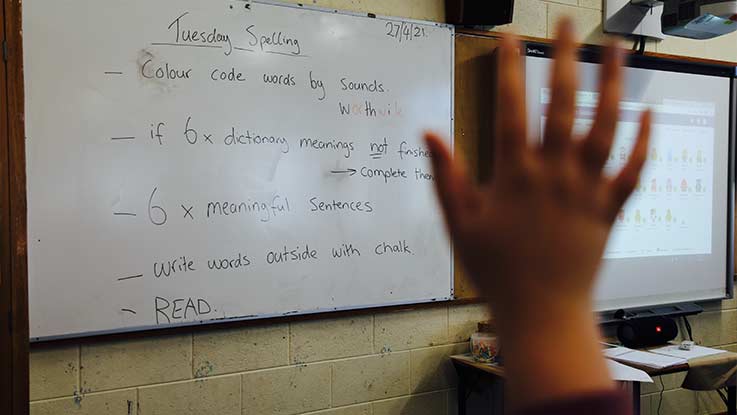 Tuesday Spelling
27/4/21.
– Colour code words by sounds.
– if 6x dictionary meanings not
→ Complete
– 6 x meaningful sentences
– write words outside with chalk.
– READ.